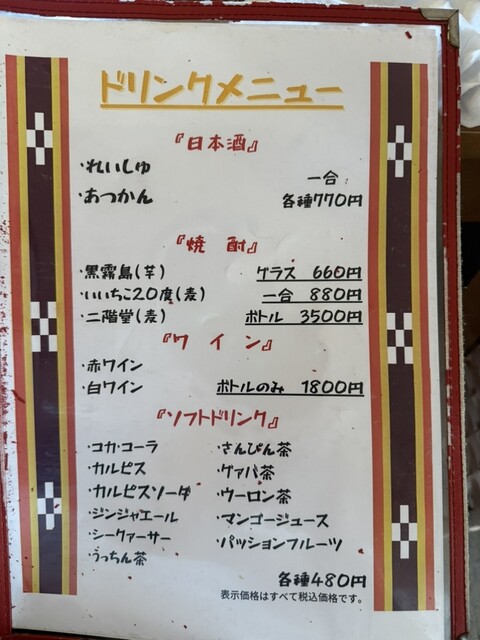 ドリンクメニュー
『日本酒』
・れいしゅ
・あつかん
一合
各種770円
『焼 酎』
・黒霧島(芋) グラス 660円
・いいちこ20度(麦) 一合 880円
・二階堂(麦) ボトル 3500円
『ワ イ ン』
・赤ワイン
・白ワイン ボトルのみ 1800円
『ソフトドリンク』
・コカ・コーラ
・カルピス
・カルピスソーダ
・ジンジャエール
・シークァーサー
・うっちん茶
・さんぴん茶
・グァバ茶
・ウーロン茶
・マンゴージュース
・パッションフルーツ
各種480円
表示価格はすべて税込価格です。